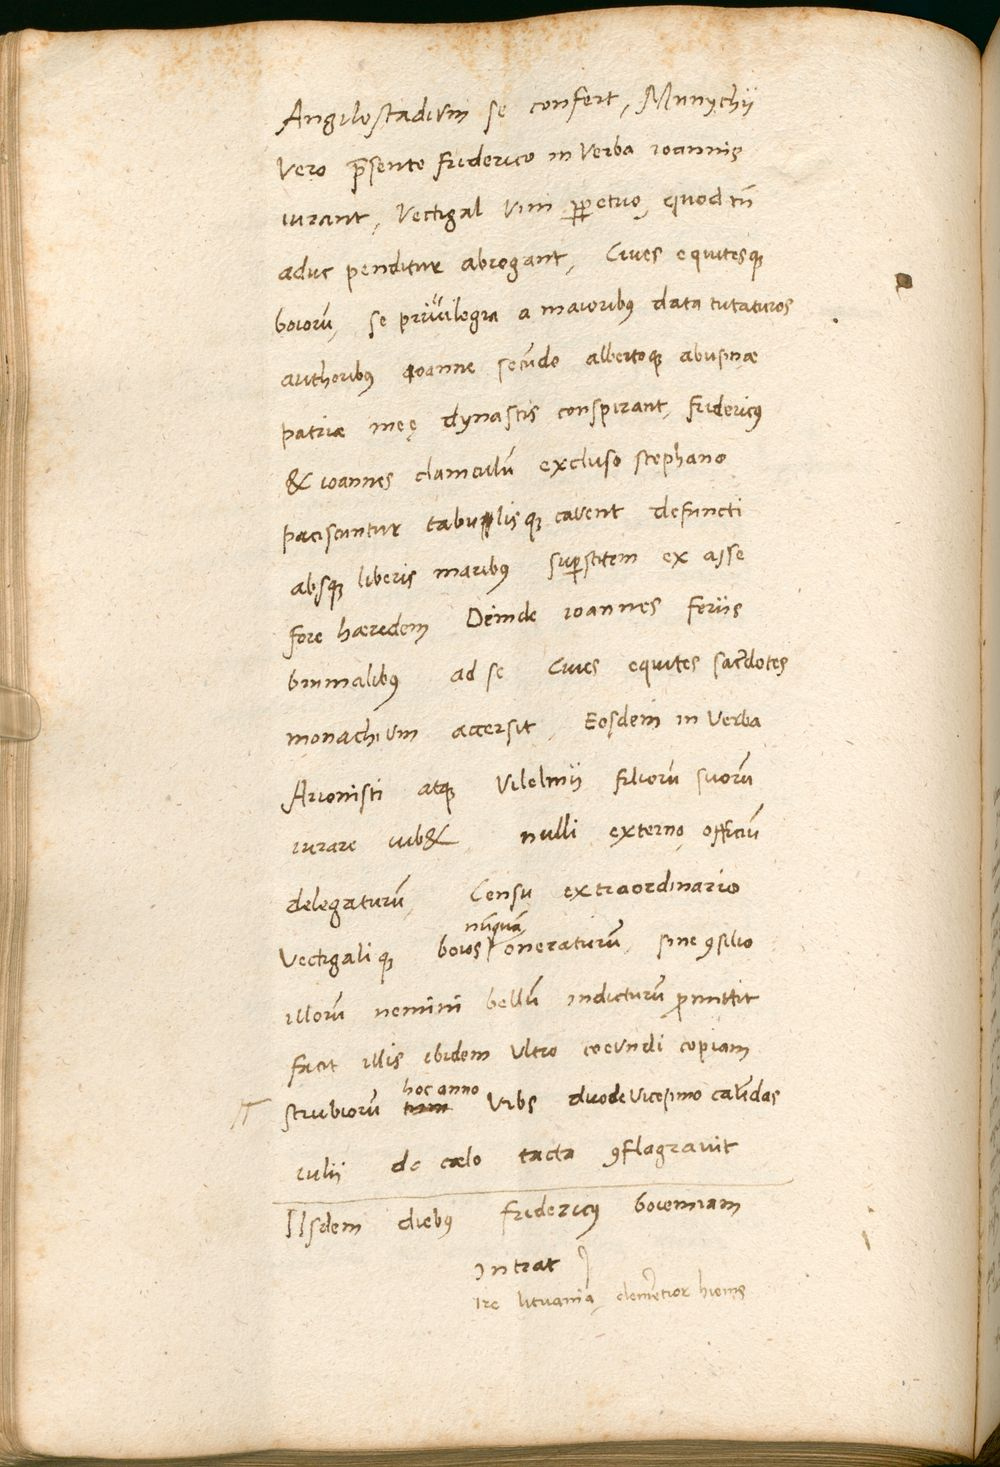 Angilostadium se confert, Mnnychij
Vero p̄sente friderico in Verba ioannis
iurant, Vectigal vini ꝑpetuo, quod tū
aduc penditur abrogant, Ciues equitesqꝫ
boiorū, se priuilegia a maioribꝰ data tutaturos
authoribꝰ ioanne secūdo albertoqꝫ abusinæ
patriæ meę dynastis conspirant, fridericꝰ
& ioannes clamculū excluso stephano
paciscuntur tabulisqꝫ cauent defuncti
absqꝫ liberis maribꝰ suꝑstitem ex asse
fore hæredem Deinde ioannes ferijs
brumalibꝰ ad se Ciues equites sac̄dotes
monachium accersit, Eosdem in Verba
Arionisti atqꝫ Vilelmij filiorū suorū
iurare iub&, nulli externo officiū
delegaturū, Censu extraordinario
nūquā
Vectigaliqꝫ boios oneraturū, sine ꝯsilio
illorū nemini bellū indicturū ꝓmittit
facit illis ibidem Vltro coeundi copiam
hoc anno
strubiorū tum Vrbs duodeVicesimo cal̄endas
iulij de cælo tacta ꝯflagrauit
IIsdem diebꝰ fridericꝰ boiemiam
intrat
ire lituania, clemētior hiems